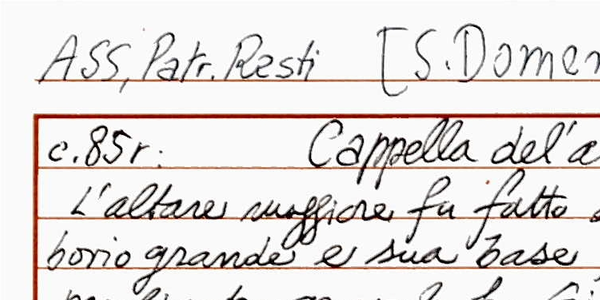 ASS, Patr. Resti [S. Domen
c. 85r: Cappella del'a
L'altare maggiore fu fatto
borio grande e sua base